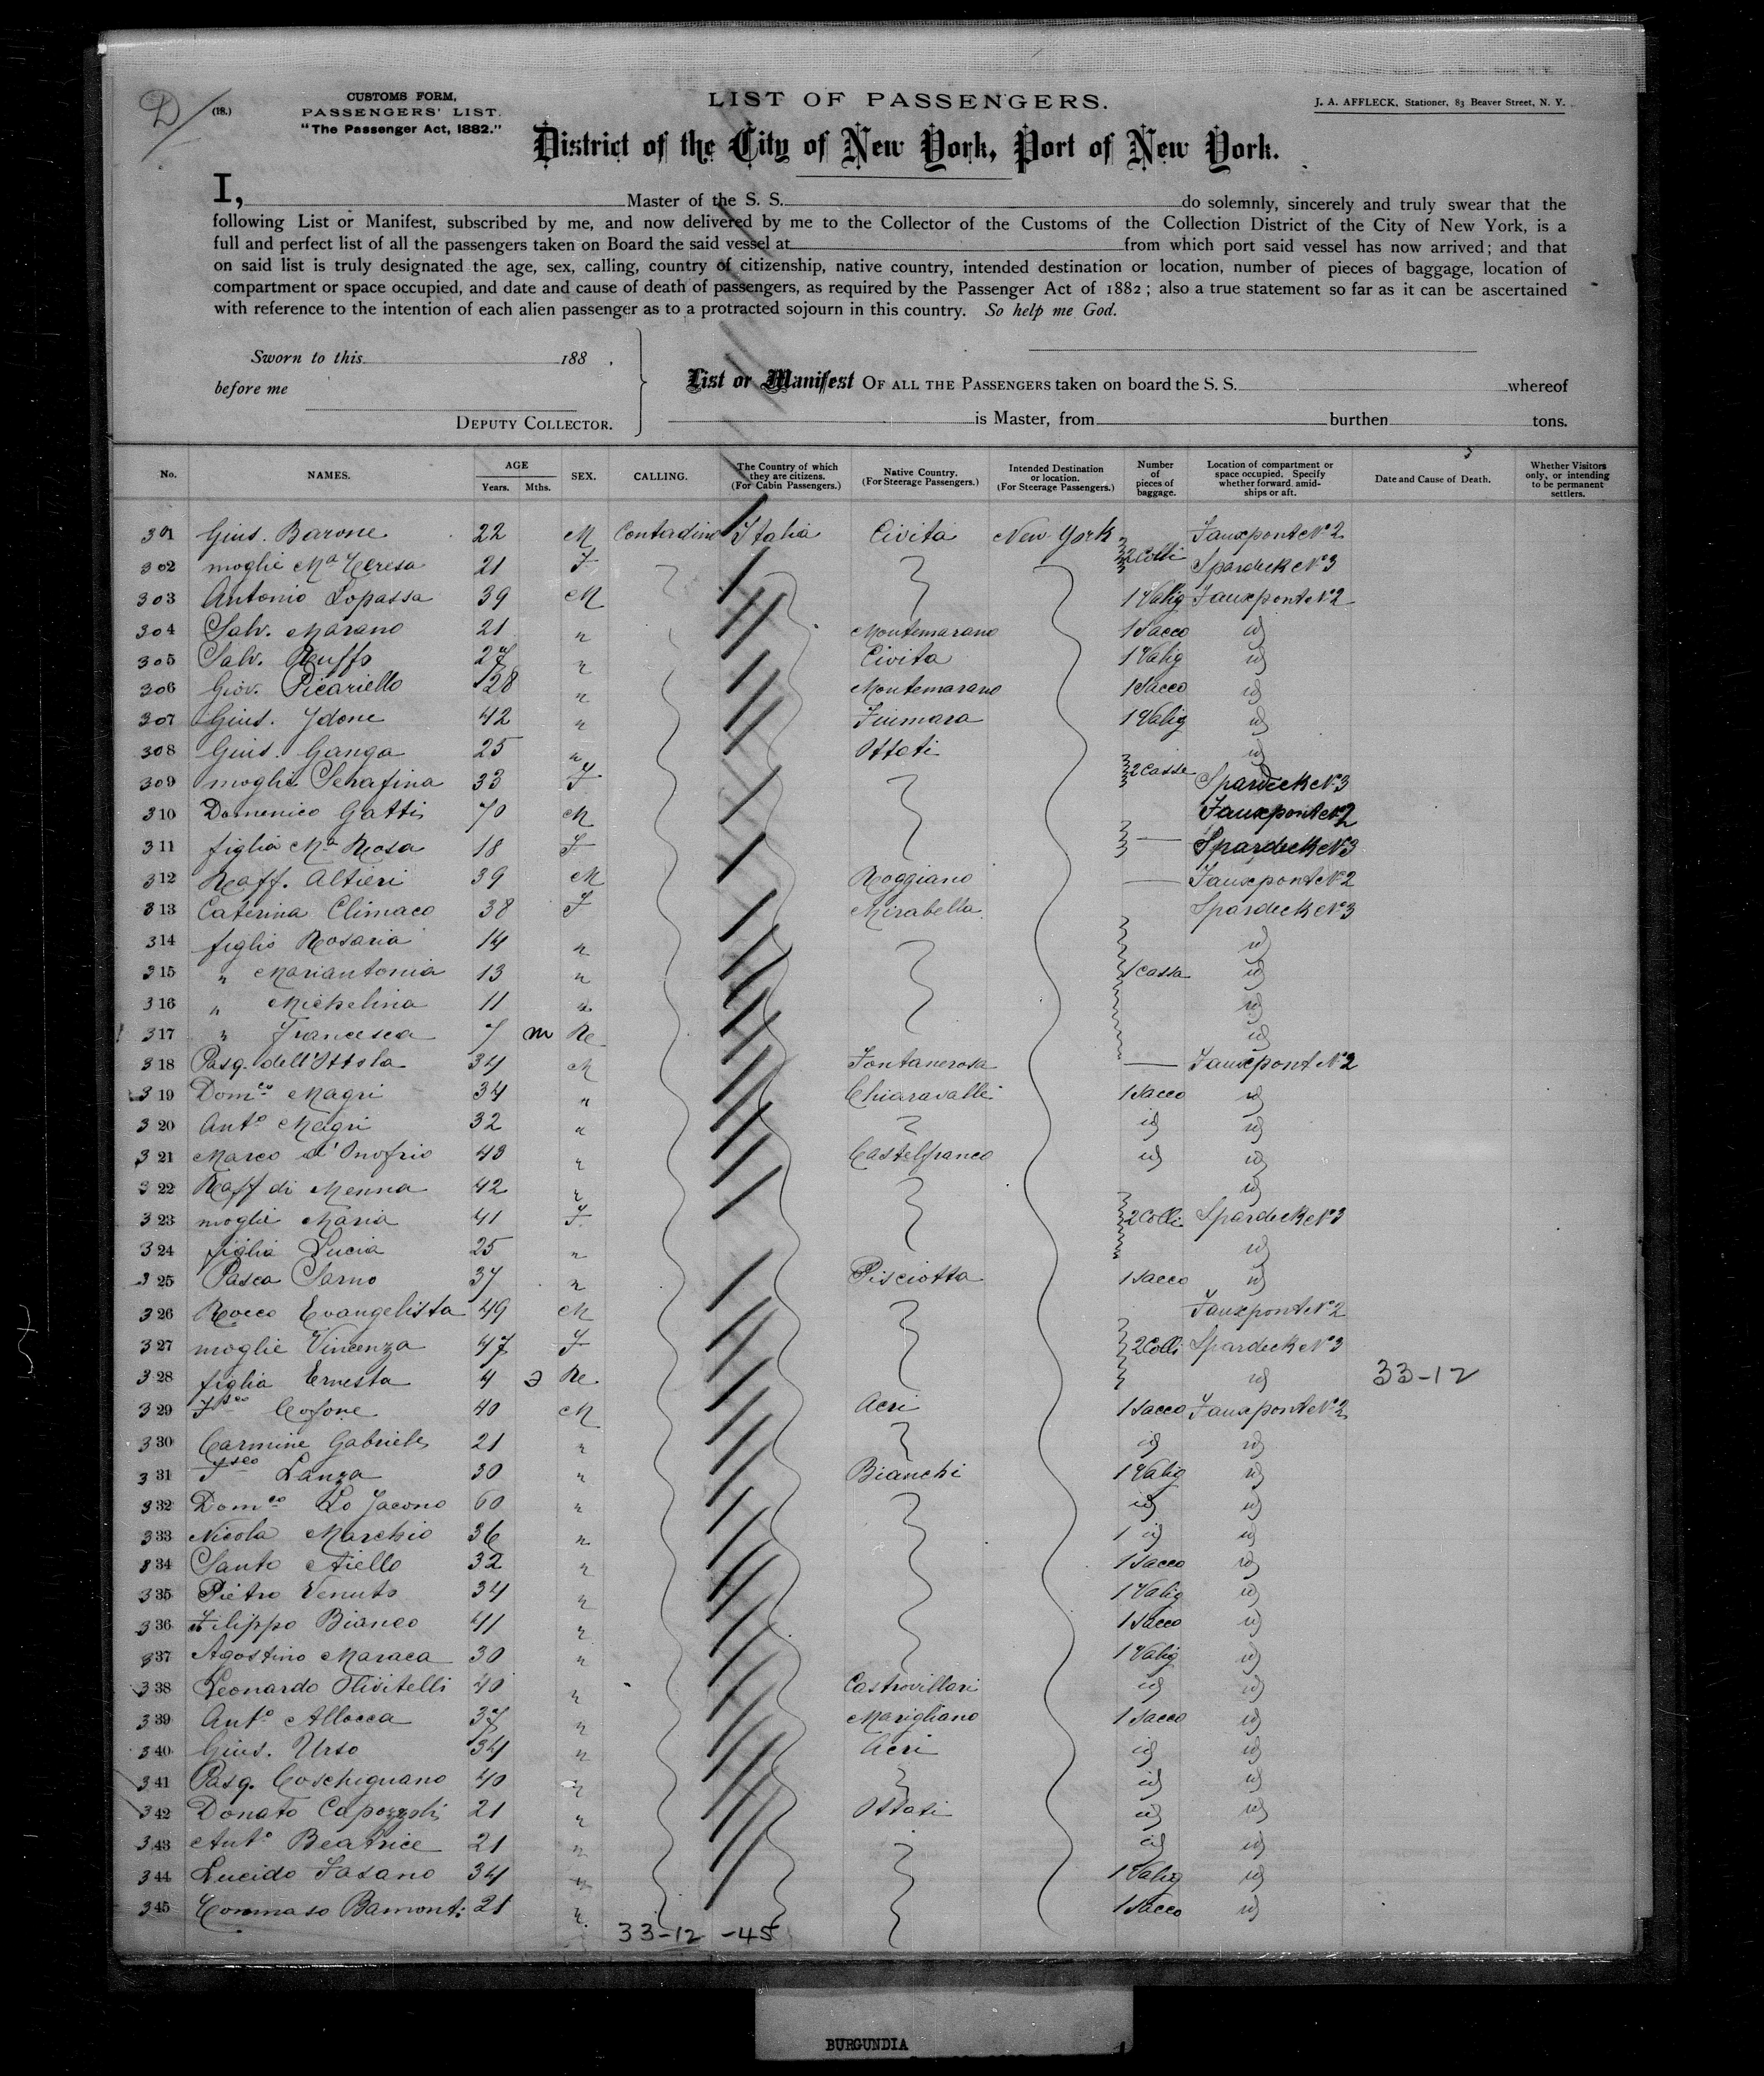 D (18.)
CUSTOMS FORM,
PASSENGERS' LIST.
"The Passenger Act, 1882."
LIST OF PASSENGERS.
J. A. AFFLECK, Stationer, 83 Beaver Street, N. Y.
District of the City of New York, Port of New York.
I, Master of the S. S. do solemnly, sincerely and truly swear that the
following List or Manifest, subscribed by me, and now delivered by me to the Collector of the Customs of the Collection District of the City of New York, is a
full and perfect list of all the passengers taken on Board the said vessel at from which port said vessel has now arrived; and that
on said list is truly designated the age, sex, calling, country of citizenship, native country, intended destination or location, number of pieces of baggage, location of
compartment or space occupied, and date and cause of death of passengers, as required by the Passenger Act of 1882; also a true statement so far as it can be ascertained
with reference to the intention of each alien passenger as to a protracted sojourn in this country. So help me God.
Sworn to this 188 .
before me
DEPUTY COLLECTOR.
List or Manifest OF ALL THE PASSENGERS taken on board the S. S. whereof
is Master, from burthen tons.
No. NAMES. AGE Years. Mths. SEX. CALLING. The Country of which they are citizens. (For Cabin Passengers.) Native Country. (For Steerage Passengers.) Intended Destination or location. (For Steerage Passengers.) Number of pieces of baggage. Location of compartment or space occupied. Specify whether forward, amidships or aft. Date and Cause of Death. Whether Visitors only, or intending to be permanent settlers.
301 Gius. Barone 22 M Contadino Italia Civita New York Fauxpont No 2
302 moglie Ma Teresa 21 F 2 Colli Spardeck No 3
303 Antonio Lopassa 39 M 1 Valig Fauxpont No 2
304 Salv. Marano 21 " Montemarano 1 Sacco id
305 Salv. Ruffo 27 " Civita 1 Valig id
306 Giov. Picariello 28 " Montemarano 1 Sacco id
307 Gius. Ydone 42 " Fiumara 1 Valig id
308 Gius. Ganga 25 " Ottati id
309 moglie Serafina 33 F 2 Casse Spardeck No 3
310 Domenico Gatti 70 M Fauxpont No 2
311 figlia Ma Rosa 18 F — Spardeck No 3
312 Raff. Altieri 39 M Roggiano — Fauxpont No 2
313 Caterina Climaco 38 F Mirabella Spardeck No 3
314 figlia Rosaria 14 " id
315 " Mariantonia 13 " 1 Cassa id
316 " Michelina 11 " id
317 " Francesca 7 m Re id
318 Pasq. dell'Ottola 34 M Fontanerosa — Fauxpont No 2
319 Domco Magri 34 " Chiaravalle 1 Sacco id
320 Anto Magri 32 " id id
321 Marco d'Onofrio 43 " Castelfranco id id
322 Raff di Menna 42 " id
323 moglie Maria 41 F 2 Colli Spardeck No 3
324 figlia Lucia 25 " id
325 Pasca Sarno 37 " Pisciotta 1 Sacco id
326 Rocco Evangelista 49 M Fauxpont No 2
327 moglie Vincenza 47 F 2 Colli Spardeck No 3
328 figlia Ernesta 4 Re id 33-12
329 Fsco Cofone 40 M Acri 1 Sacco Fauxpont No 2
330 Carmine Gabriele 21 " id id
331 Fsco Lanza 30 " Bianchi 1 Valig id
332 Domco Lo Jacono 60 " id id
333 Nicola Marchio 36 " 1 id id
334 Santo Aiello 32 " 1 Sacco id
335 Pietro Venuto 34 " 1 Valig id
336 Filippo Bianco 41 " 1 Sacco id
337 Agostino Maraca 30 " 1 Valig id
338 Leonardo Olivitelli 40 " Castrovillari id id
339 Anto Allocca 37 " Marigliano 1 Sacco id
340 Gius. Urso 34 " Acri id id
341 Pasq. Coschignano 40 " id id
342 Donato Capozzoli 21 " Ottati id id
343 Anto Beatrice 21 " id id
344 Lucido Fasano 34 " 1 Valig id
345 Tommaso Bamonte 21 " 1 Sacco id
33-12 -45
BURGUNDIA